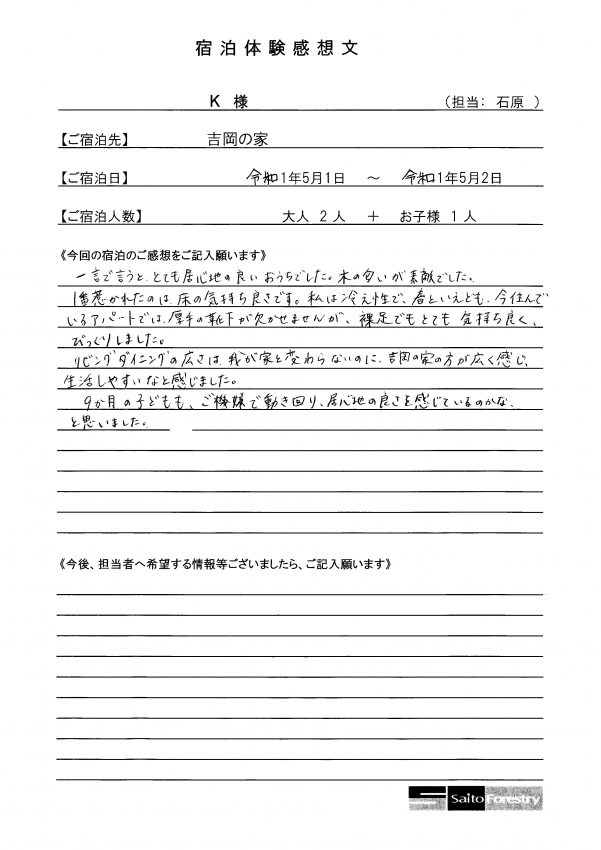 宿泊体験感想文
K 様 (担当: 石原 )
【ご宿泊先】 吉岡の家
【ご宿泊日】 令和1年5月1日 ～ 令和1年5月2日
【ご宿泊人数】 大人 2人 ＋ お子様 1人
《今回の宿泊のご感想をご記入願います》
一言で言うと、とても居心地の良いおうちでした。木の匂いが素敵でした。
1番惹かれたのは、床の気持ち良さです。私は冷え性で、春といえども、今住んで
いるアパートでは、厚手の靴下が欠かせませんが、裸足でもとても気持ち良く、
びっくりしました。
リビングダイニングの広さは、我が家と変わらないのに、吉岡の家の方が広く感じ、
生活しやすいなと感じました。
9か月の子どもも、ご機嫌で動き回り、居心地の良さを感じているのかな、
と思いました。
《今後、担当者へ希望する情報等ございましたら、ご記入願います》
Saito Forestry